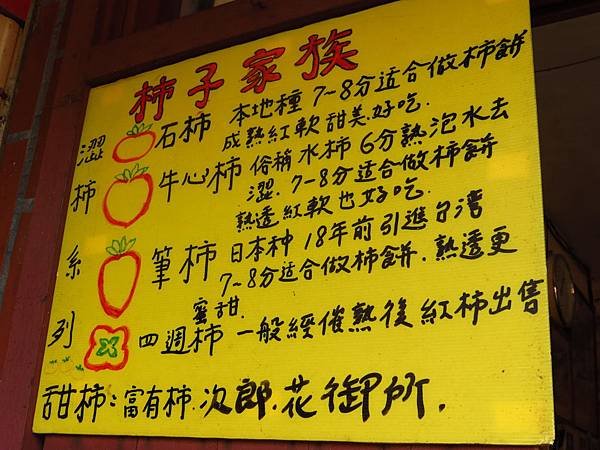 柿子家族
澀柿系列
石柿 本地種 7~8分适合做柿餅
成熟紅軟甜美.好吃.
牛心柿 俗稱水柿 6分熟泡水去
澀. 7~8分适合做柿餅
熟透紅軟也好吃.
筆柿 日本种 18年前引進台湾
7~8分适合做柿餅.熟透更
蜜甜.
四週柿 一般經催熟後紅柿出售
甜柿:富有柿.次郎.花御所.